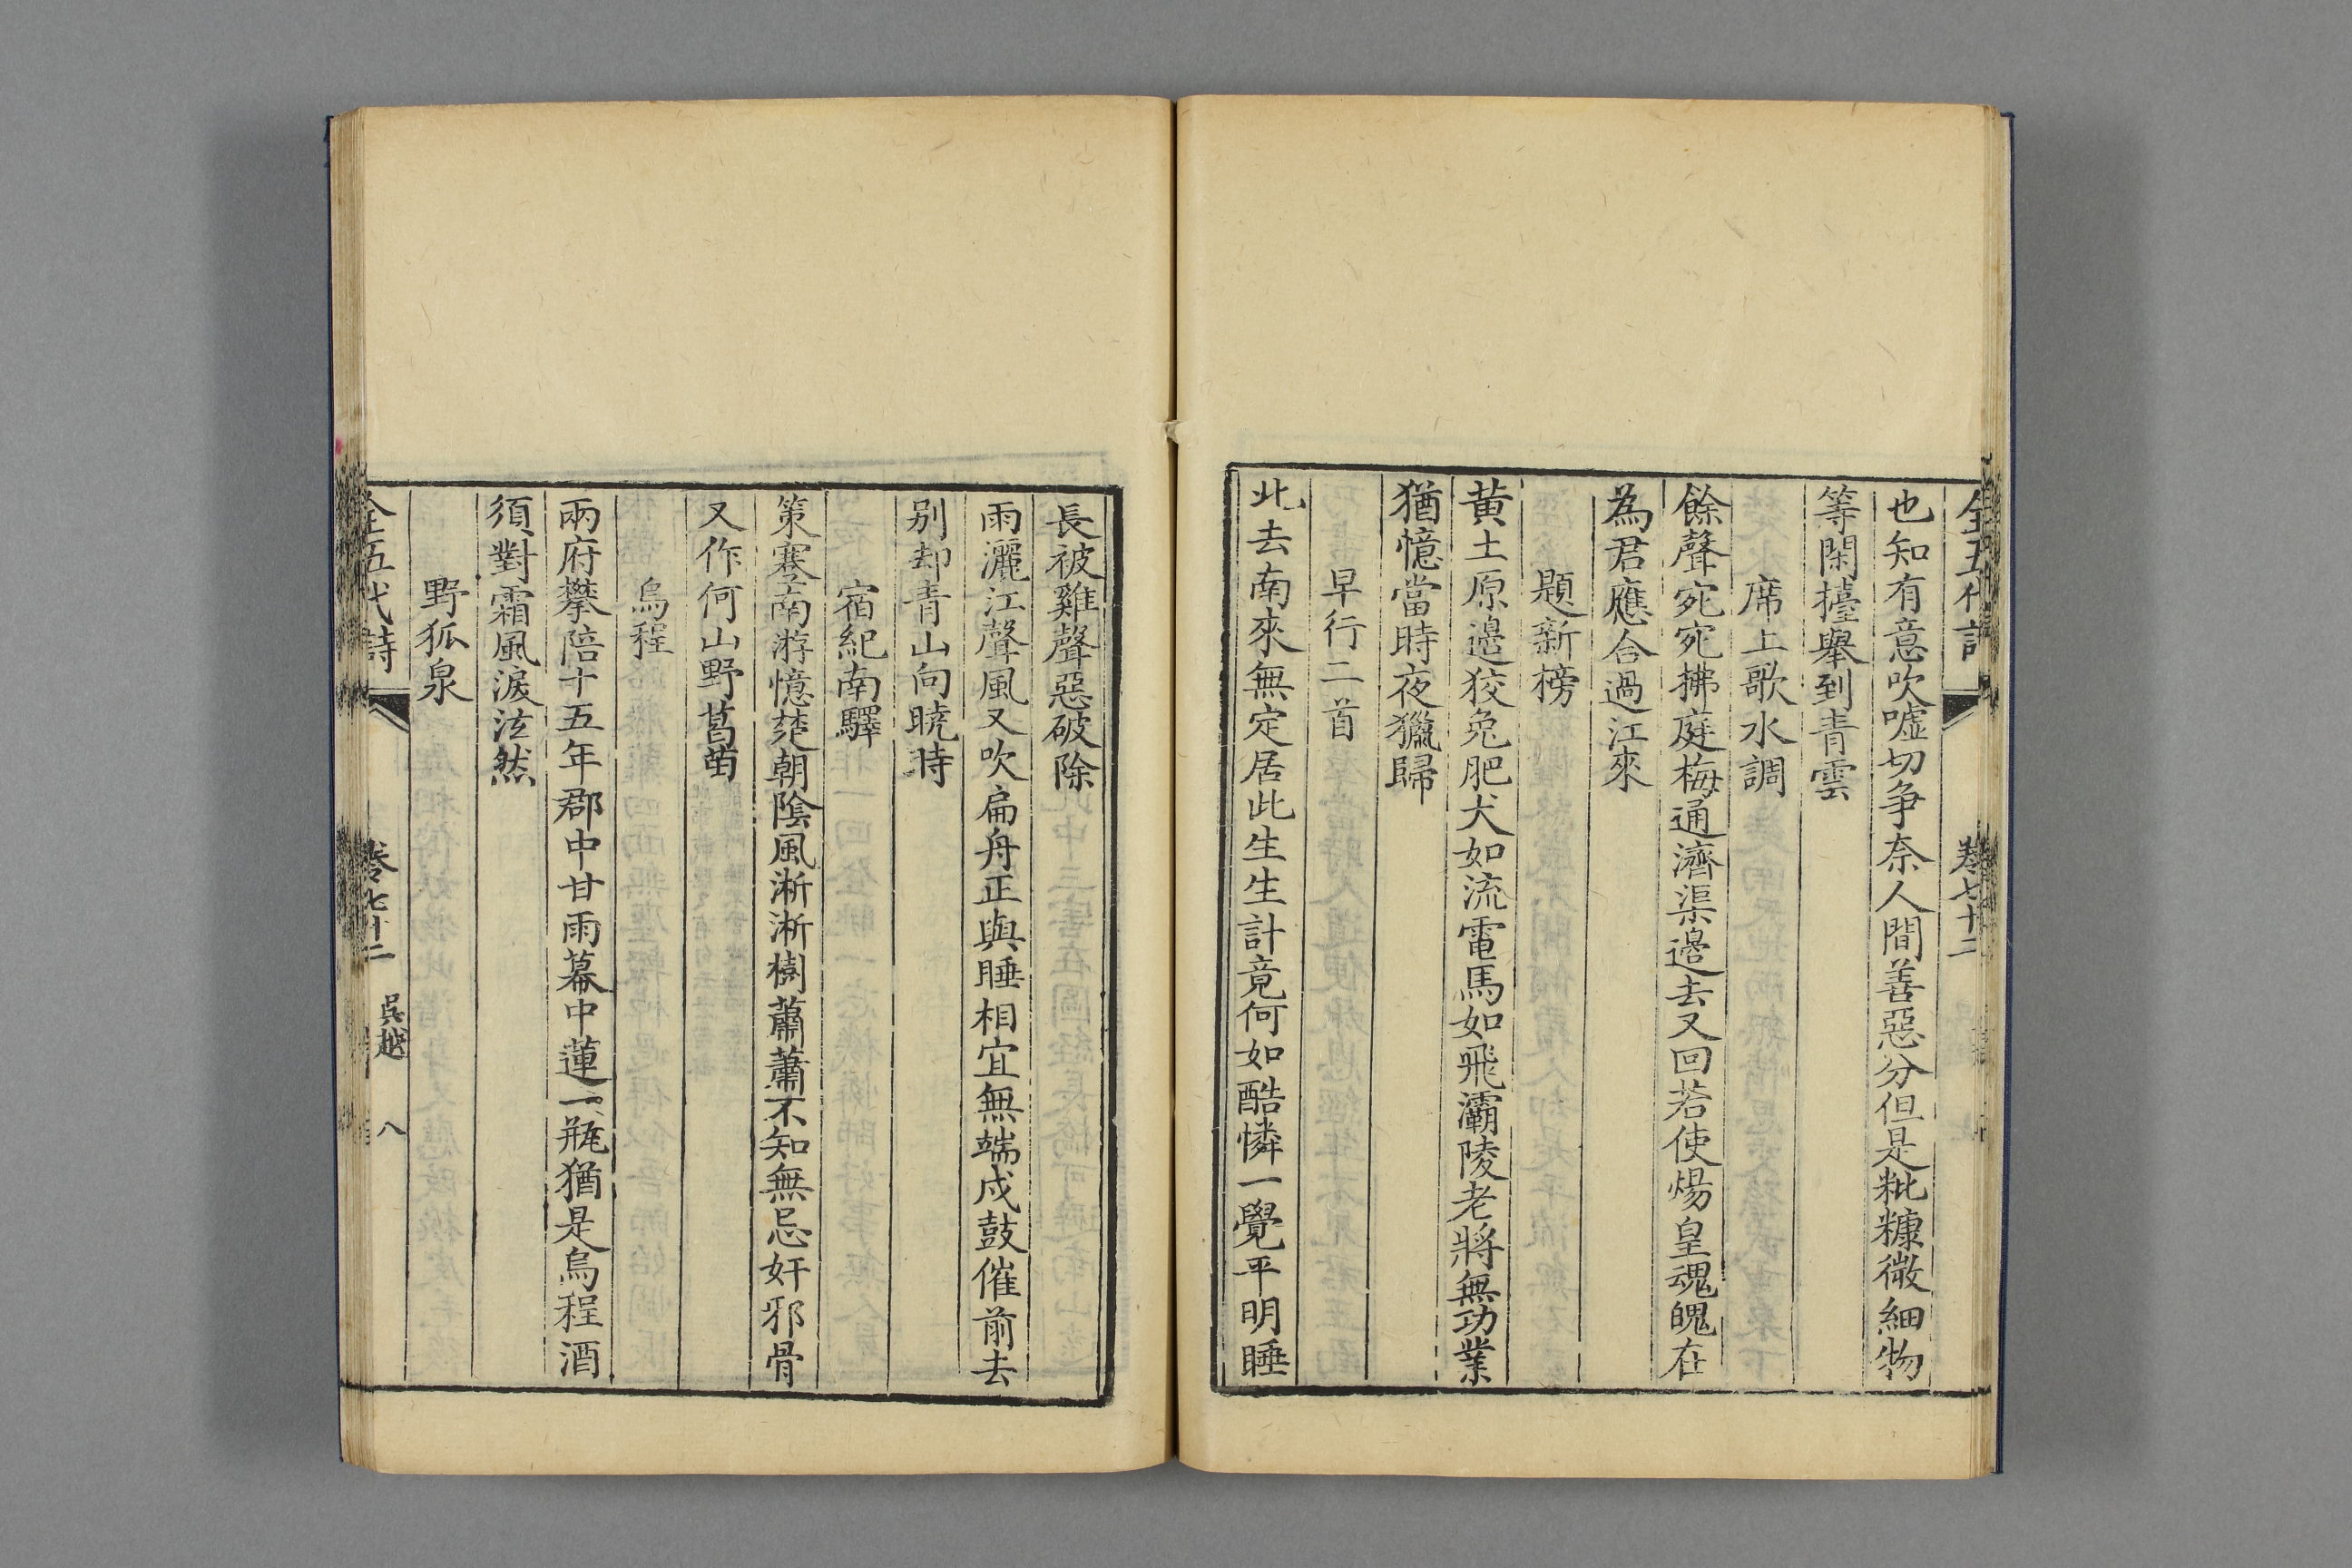 全五代詩 卷七十二
也知有意吹噓切爭奈人間善惡分但是粃糠微細物
等閑擡舉到青雲
席上歌水調
餘聲宛宛拂庭梅通濟渠邉去又回若使煬皇魂魄在
為君應合過江來
題新榜
黄土原邉狡兔肥犬如流電馬如飛灞陵老將無功業
猶憶當時夜獵歸
早行二首
北去南來無定居此生生計竟何如酷憐一覺平明睡
長被雞聲惡破除
雨灑江聲風又吹扁舟正與睡相宜無端戍鼓催前去
别却青山向曉時
宿紀南驛
策蹇南游憶楚朝陰風淅淅樹蕭蕭不知無忌奸邪骨
又作何山野葛苗
烏程
兩府攀陪十五年郡中甘雨幕中蓮一瓶猶是烏程酒
須對霜風淚泫然
野狐泉
全五代詩 卷七十二 吳越 八